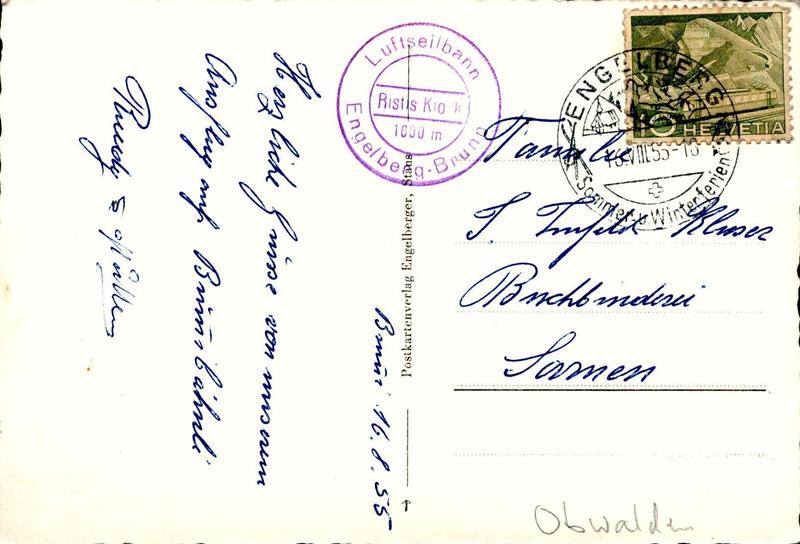 Herzliche Grüsse von unserem
Ausflug auf Brunnibähnli
Ruedy &
Brunni 16.8.55
Luftseilbahn
Ristis Kiosk
1600 m
Engelberg-Brunni
Postkartenverlag Engelberger, Stans
ENGELBERG
VIII.55-18
Sommer- u Winterferien
10 HELVETIA
Familie
J. Imfeld Kluser
Buchbinderei
Sarnen
Obwalden